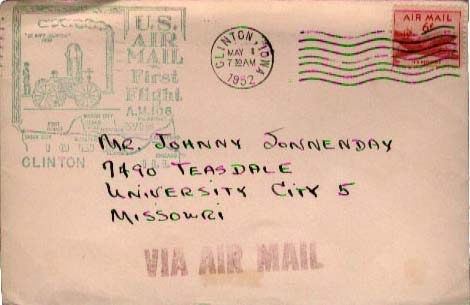 U.S.
AIR
MAIL
First
Flight
A.M. 106
CLINTON
CLINTON, IOWA
MAY 1
7 30 AM
1952
AIR MAIL
6¢
MR. JOHNNY JONNENDAY
7490 TEASDALE
UNIVERSITY CITY 5
MISSOURI
VIA AIR MAIL